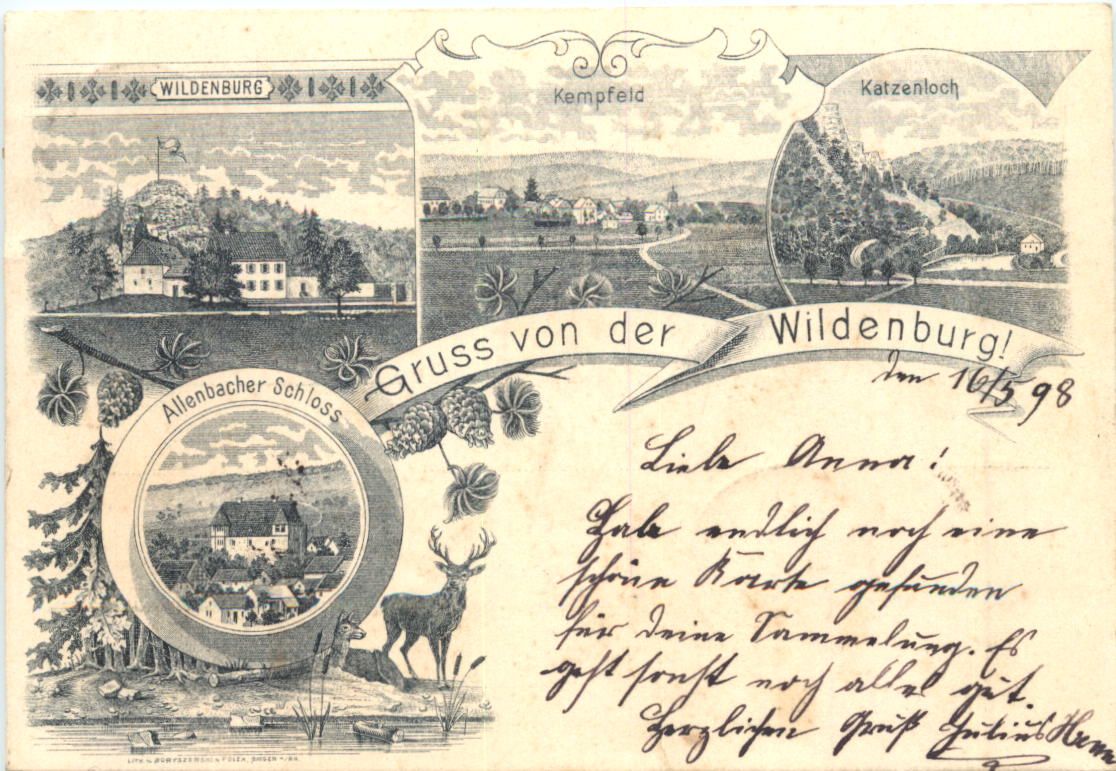 WILDENBURG
Kempfeld
Katzenloch
Gruss von der Wildenburg!
Allenbacher Schloss
den 16/5 98
Liebe Anna!
Habe endlich noch eine
schöne Karte gefunden
für Deine Sammelung. Es
geht sonst noch alles gut.
Herzlichen Gruß Julius
LITH. V. BORYSZEWSKI & POLEX, BINGEN A/RH.